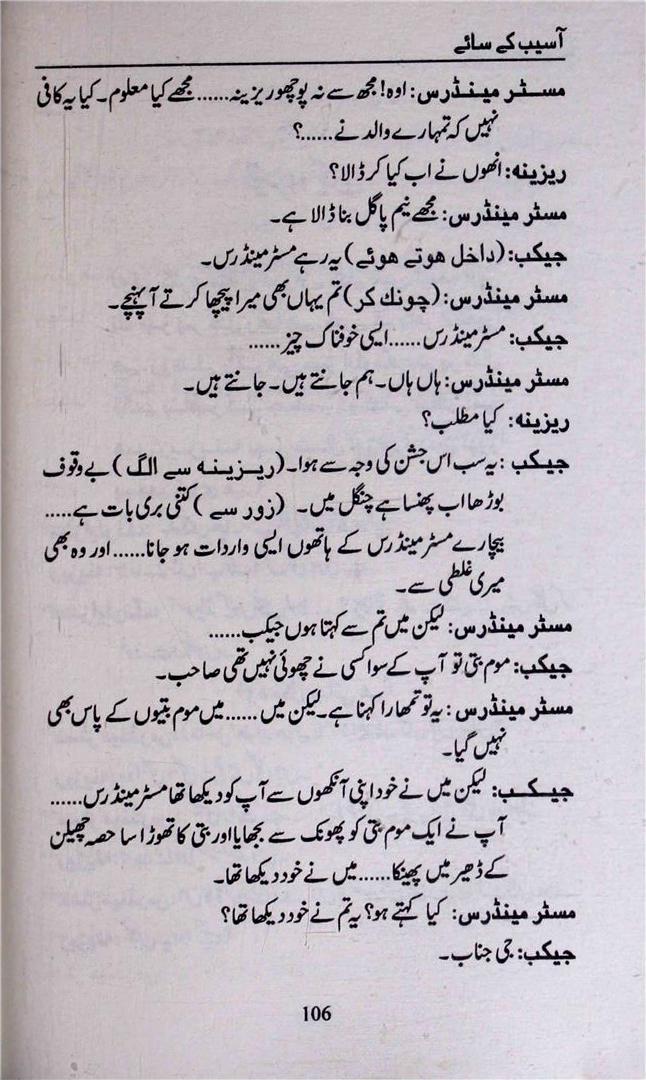 آسیب کے سائے
مسٹر مینڈرس: اوہ! مجھ سے نہ پوچھو ریزینہ...... مجھے کیا معلوم۔ کیا یہ کافی
نہیں کہ تمہارے والد نے......؟
ریزینہ: انھوں نے اب کیا کر ڈالا؟
مسٹر مینڈرس: مجھے نیم پاگل بنا ڈالا ہے۔
جیکب: (داخل ہوتے ہوئے) یہ رہے مسٹر مینڈرس۔
مسٹر مینڈرس: (چونک کر) تم یہاں بھی میرا پیچھا کرتے آ پہنچے۔
جیکب: مسٹر مینڈرس...... ایسی خوفناک چیز......
مسٹر مینڈرس: ہاں ہاں۔ ہم جانتے ہیں۔ جانتے ہیں۔
ریزینہ: کیا مطلب؟
جیکب: یہ سب اس جشن کی وجہ سے ہوا۔ (ریزینہ سے الگ) بے وقوف
بوڑھا اب پھنسا ہے چنگل میں۔ (زور سے) کتنی بری بات ہے.....
بیچارے مسٹر مینڈرس کے ہاتھوں ایسی واردات ہو جانا...... اور وہ بھی
میری غلطی سے۔
مسٹر مینڈرس: لیکن میں تم سے کہتا ہوں جیکب......
جیکب: موم بتی تو آپ کے سوا کسی نے چھوئی نہیں تھی صاحب۔
مسٹر مینڈرس: یہ تو تمھارا کہنا ہے۔ لیکن میں...... میں موم بتیوں کے پاس بھی
نہیں گیا۔
جیکب: لیکن میں نے خود اپنی آنکھوں سے آپ کو دیکھا تھا مسٹر مینڈرس......
آپ نے ایک موم بتی کو پھونک سے بجھایا اور بتی کا تھوڑا سا حصہ چھیلن
کے ڈھیر میں پھینکا...... میں نے خود دیکھا تھا۔
مسٹر مینڈرس: کیا کہتے ہو؟ یہ تم نے خود دیکھا تھا؟
جیکب: جی جناب۔
106